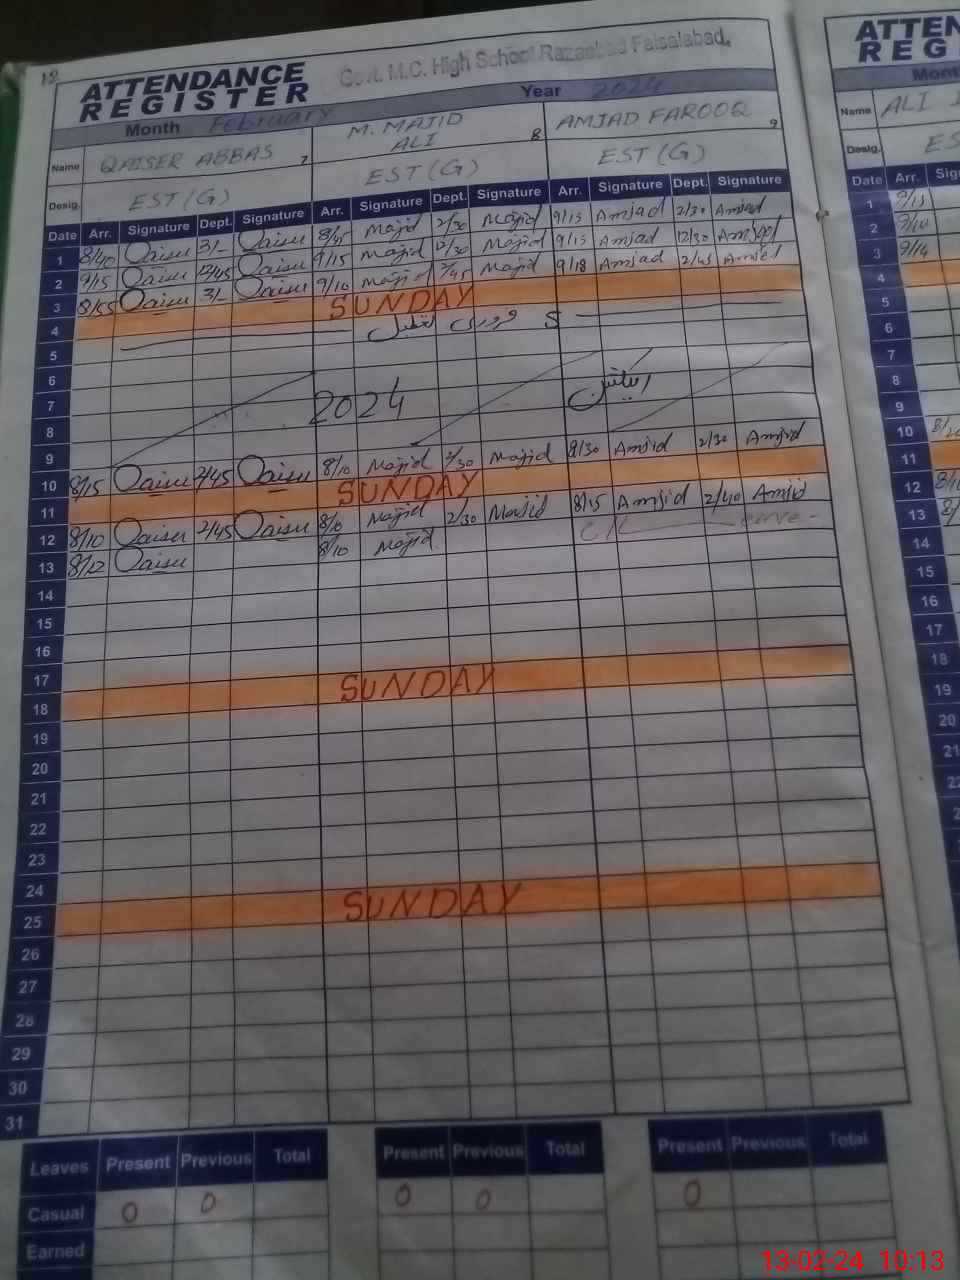 12
ATTENDANCE REGISTER
Govt. M.C. High School Razaabad Faisalabad.
Month February Year 2024
Name QAISER ABBAS 7 M. MAJID ALI 8 AMJAD FAROOQ 9
Desig. EST (G) EST (G) EST (G)
Date Arr. Signature Dept. Signature Arr. Signature Dept. Signature Arr. Signature Dept. Signature
1 8/40 Qaiser 3/- Qaiser 8/45 Majid 2/30 Majid 9/15 Amjad 2/30 Amjad
2 9/15 Qaiser 12/45 Qaiser 9/15 Majid 12/30 Majid 9/15 Amjad 12/30 Amjad
3 8/55 Qaiser 3/- Qaiser 9/10 Majid 2/45 Majid 9/18 Amjad 2/45 Amjad
4 SUNDAY
5 فروری تعطیل
6
7 2024
8
9
10 8/15 Qaiser 2/45 Qaiser 8/10 Majid 2/30 Majid 8/30 Amjid 2/30 Amjid
11 SUNDAY
12 8/10 Qaiser 2/45 Qaiser 8/10 Majid 2/30 Majid 8/15 Amjid 2/40 Amjid
13 8/12 Qaiser 8/10 Majid Leave -
14
15
16
17
18 SUNDAY
19
20
21
22
23
24
25 SUNDAY
26
27
28
29
30
31
Leaves Present Previous Total Present Previous Total Present Previous Total
Casual 0 0 0 0 0
Earned
ATTEN
REG
Month
Name ALI
Desig. ES
Date Arr. Sign
1 9/15
2 9/10
3 9/14
4
5
6
7
8
9
10 8/20
11
12 8/10
13
14
15
16
17
18
19
20
21
13-02-24 10:13